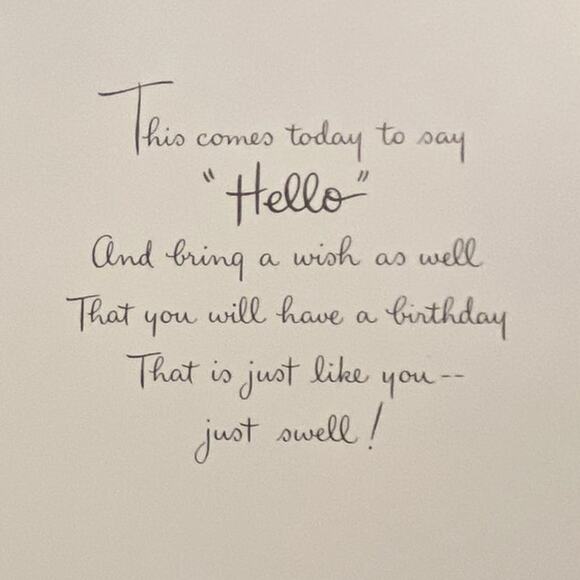 This comes today to say
"Hello"
And bring a wish as well
That you will have a birthday
That is just like you--
just swell!